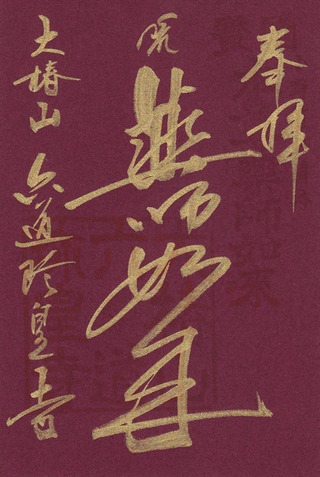 奉拝
薬師如来
大椿山 六道珍皇寺